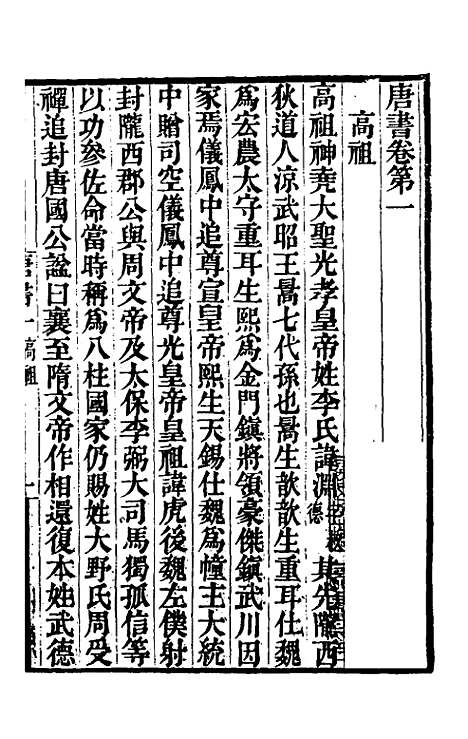 唐書卷第一
高祖
高祖神堯大聖光孝皇帝姓李氏諱淵其先隴西
狄道人涼武昭王暠七代孫也暠生歆歆生重耳仕魏
爲宏農太守重耳生熙爲金門鎮將領豪傑鎮武川因
家焉儀鳳中追尊宣皇帝熙生天錫仕魏爲幢主大統
中贈司空儀鳳中追尊光皇帝皇祖諱虎後魏左僕射
封隴西郡公與周文帝及太保李弼大司馬獨孤信等
以功參佐命當時稱爲八柱國家仍賜姓大野氏周受
禪追封唐國公諡曰襄至隋文帝作相還復本姓武德
唐書一高祖
一